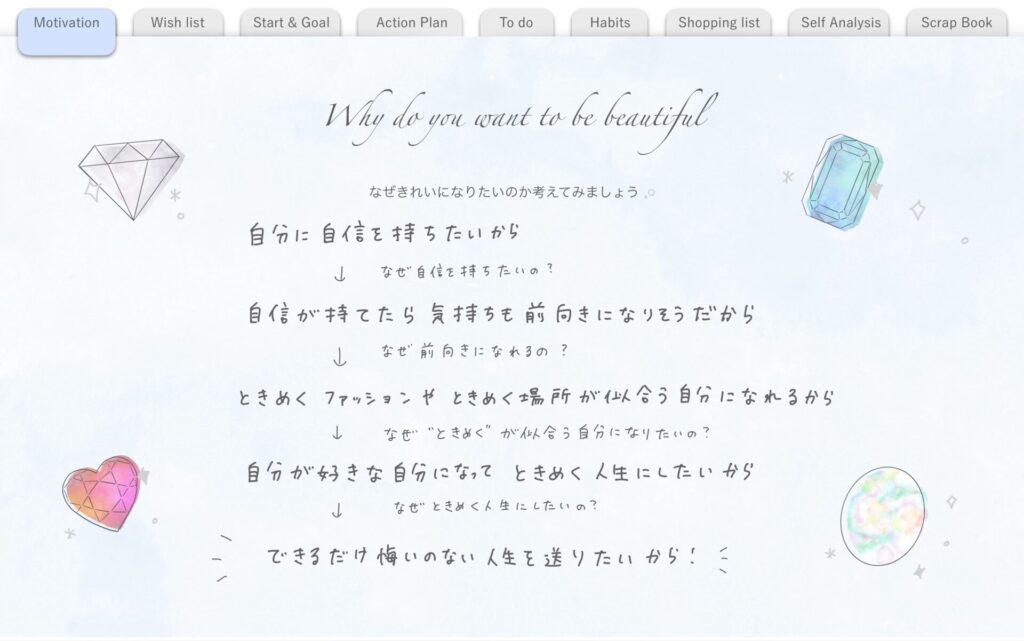 Motivation Wish list Start & Goal Action Plan To do Habits Shopping list Self Analysis Scrap Book
Why do you want to be beautiful
なぜきれいになりたいのか考えてみましょう
自分に自信を持ちたいから
↓ なぜ自信を持ちたいの？
自信が持てたら気持ちも前向きになりそうだから
↓ なぜ前向きになれるの？
ときめくファッションやときめく場所が似合う自分になれるから
↓ なぜ"ときめく"が似合う自分になりたいの？
自分が好きな自分になって ときめく人生にしたいから
↓ なぜときめく人生にしたいの？
できるだけ悔いのない人生を送りたいから！